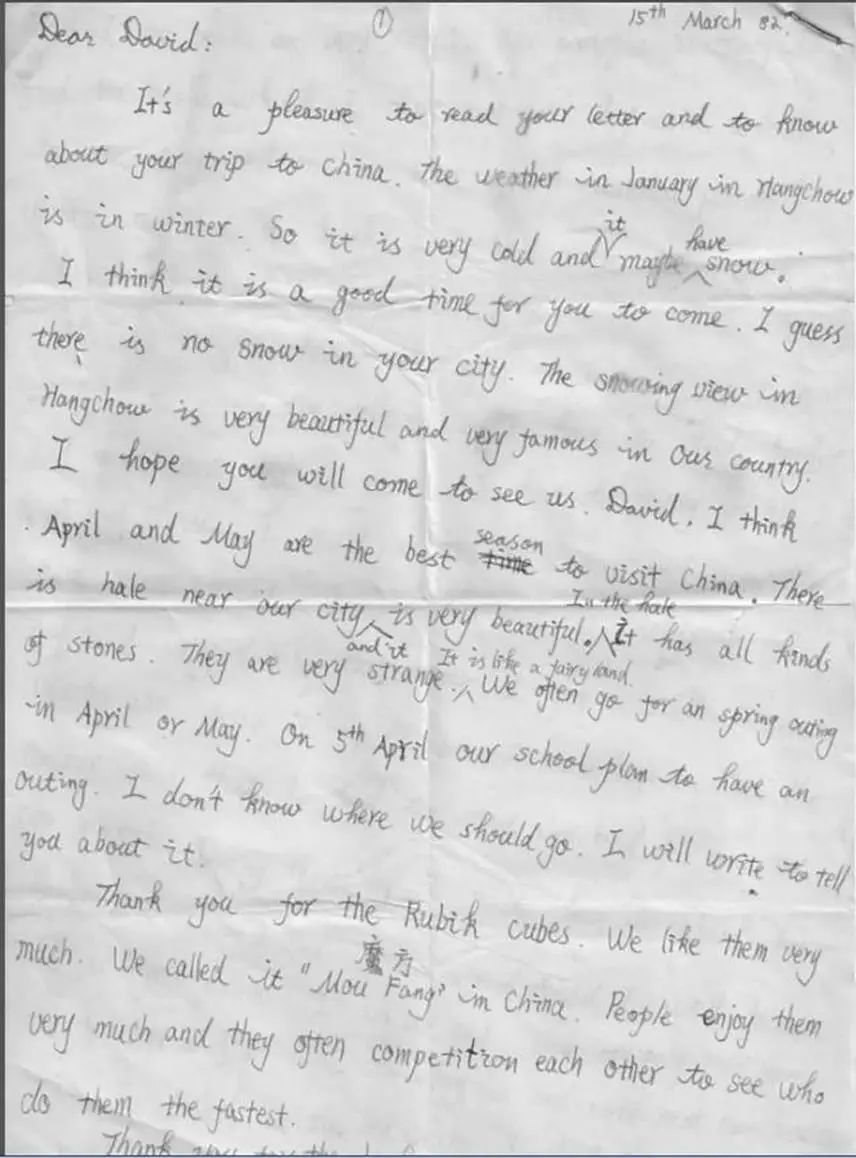 ① 15th March 82.
Dear David:
It's a pleasure to read your letter and to know
about your trip to China. The weather in January in Hangchow
is in winter. So it is very cold and it maybe have snow.
I think it is a good time for you to come. I guess
there is no snow in your city. The snowing view in
Hangchow is very beautiful and very famous in our country.
I hope you will come to see us. David, I think
April and May are the best time season to visit China. There
is hale near our city and it is very beautiful. In the hale it has all kinds
of stones. They are very strange. It is like a fairy land. We often go for an spring outing
in April or May. On 5th April our school plan to have an
outing. I don't know where we should go. I will write to tell
you about it.
Thank you for the Rubik cubes. We like them very
much. We called it "Mou Fang" 魔方 in China. People enjoy them
very much and they often competition each other to see who
do them the fastest.
Thank you for the